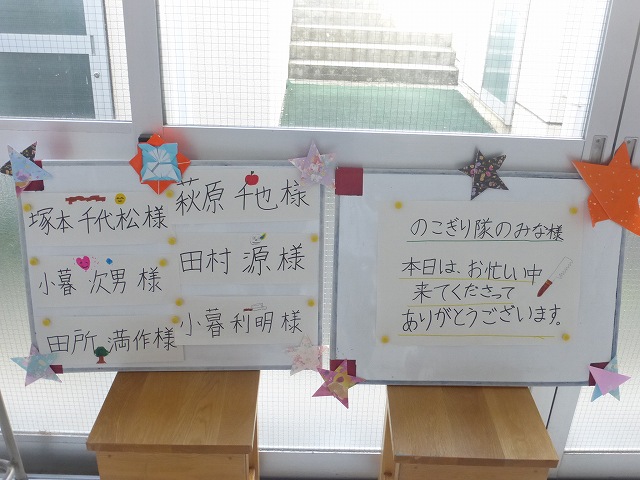 塚本 千代松 様
萩原 千也 様
小暮 次男 様
田村 源 様
田所 満作 様
小暮 利明 様
のこぎり隊のみな様
本日は、お忙しい中
来てくださって
ありがとうございます。